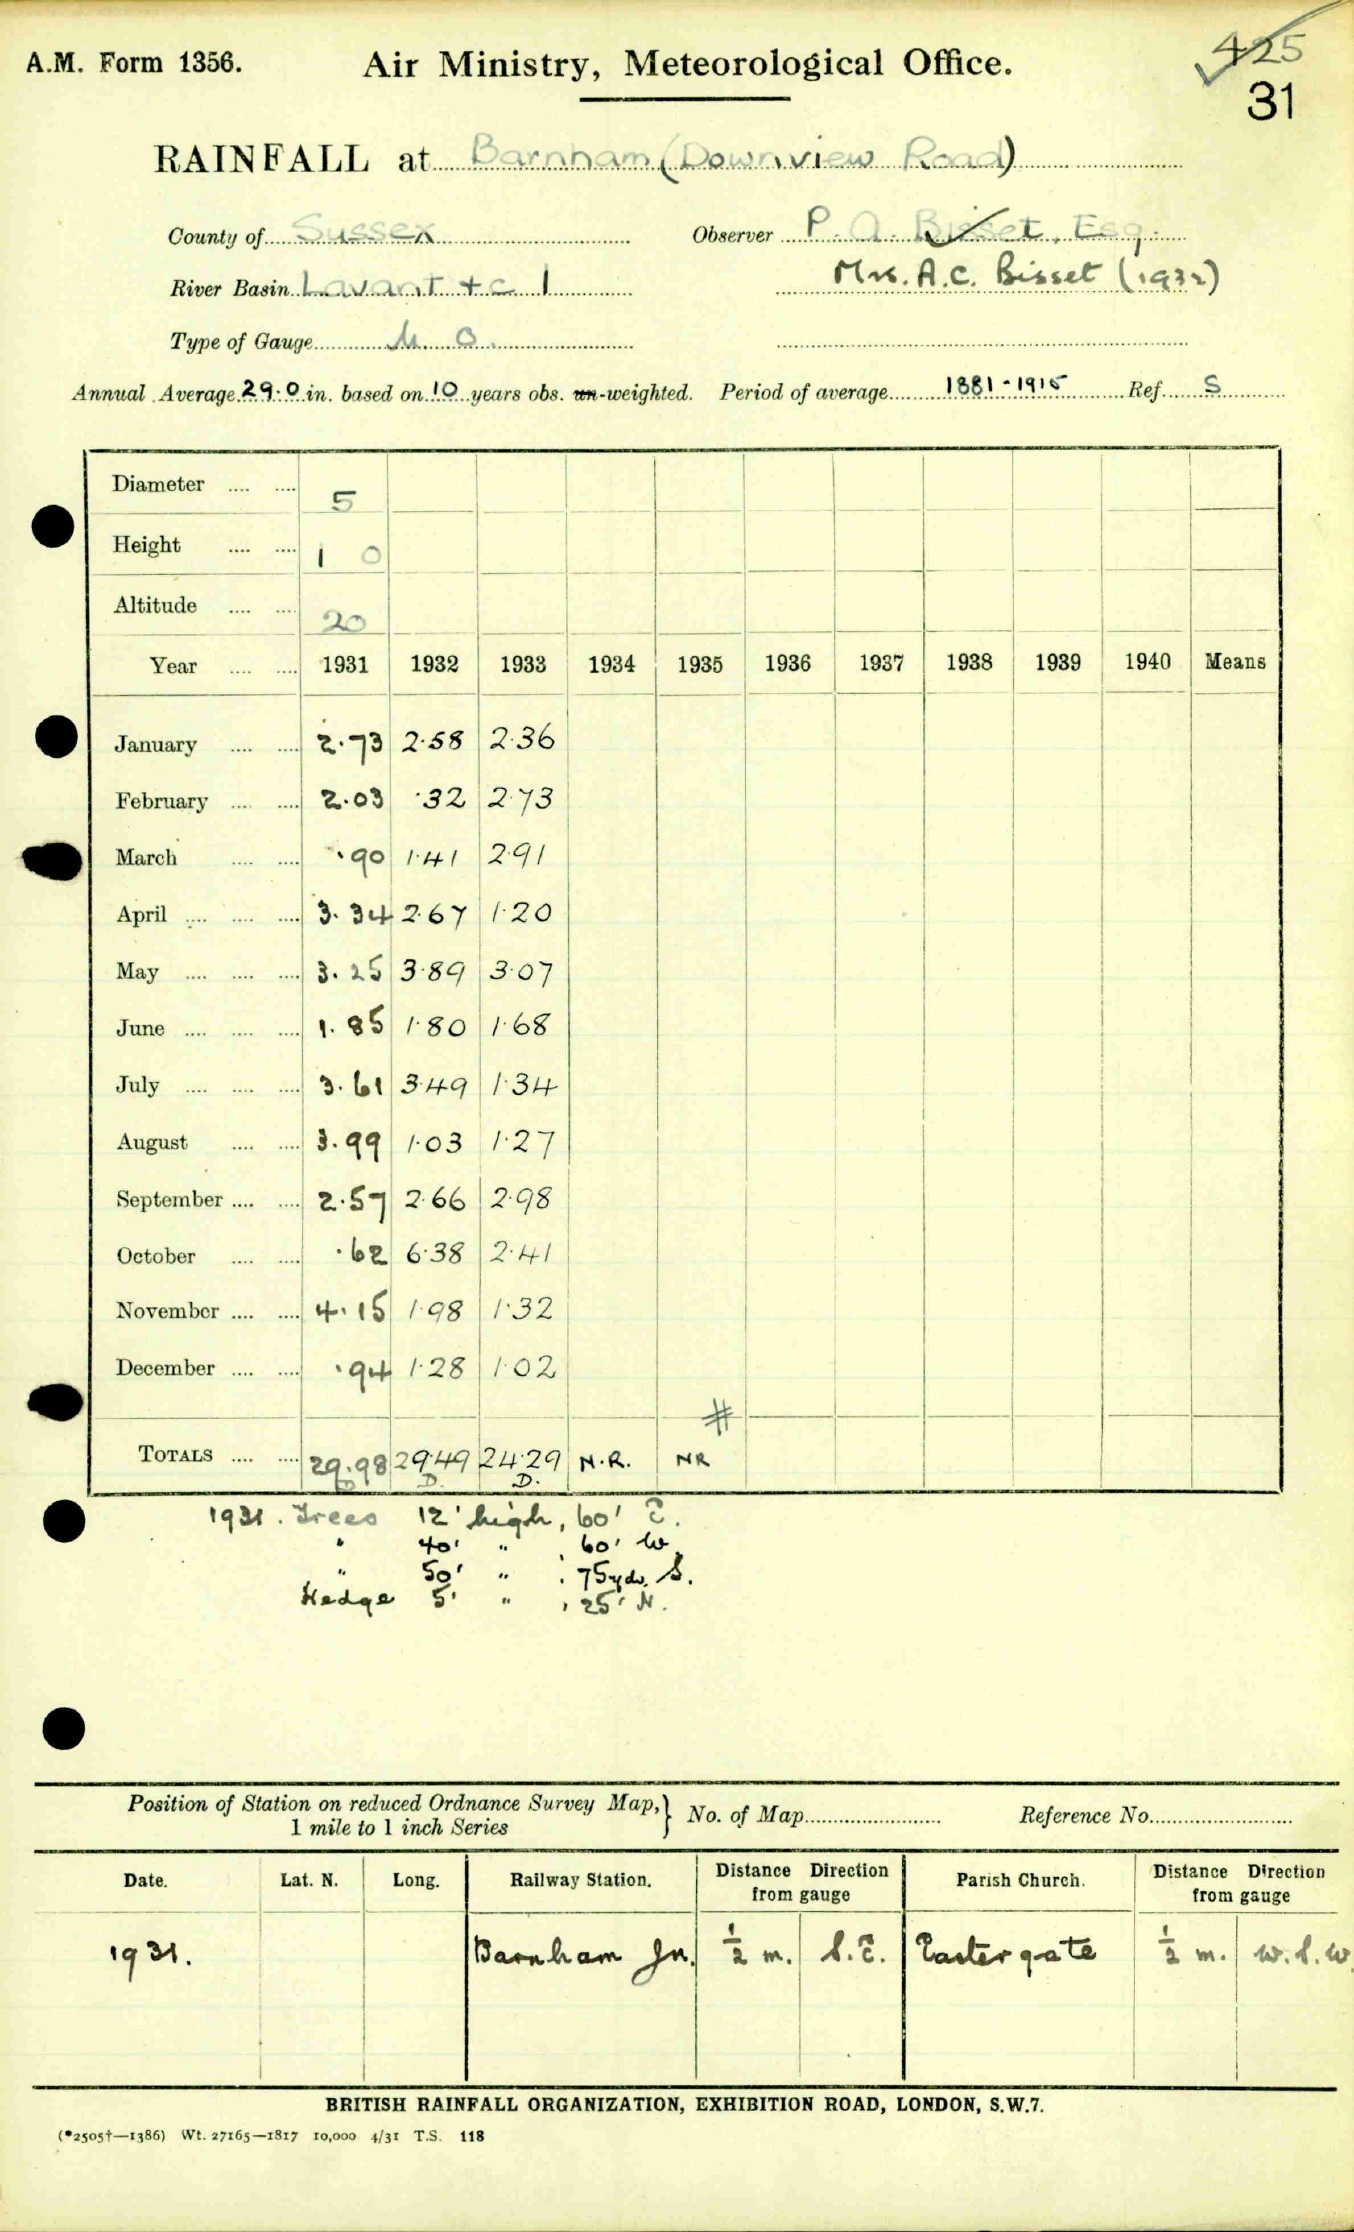 A.M. Form 1356. Air Ministry, Meteorological Office. 425
31
RAINFALL at Barnham (Downview Road)
County of Sussex Observer P. A. Bisset, Esq.
River Basin Lavant +c 1 Mrs. A.C. Bisset (1932)
Type of Gauge M O.
Annual Average 29.0 in. based on 10 years obs. un-weighted. Period of average 1881-1915 Ref. S
Diameter .... .... 5
Height .... .... 1 0
Altitude .... .... 20
Year .... .... 1931 1932 1933 1934 1935 1936 1937 1938 1939 1940 Means
January .... .... 2.73 2.58 2.36
February .... .... 2.03 .32 2.73
March .... .... .90 1.41 2.91
April .... .... .... 3.34 2.67 1.20
May .... .... .... 3.25 3.89 3.07
June .... .... .... 1.85 1.80 1.68
July .... .... .... 3.61 3.49 1.34
August .... .... 3.99 1.03 1.27
September .... .... 2.57 2.66 2.98
October .... .... .62 6.38 2.41
November .... .... 4.15 1.98 1.32
December .... .... .94 1.28 1.02
#
TOTALS .... .... 29.98 29.49 24.29 N.R. NR
D D. D.
1931. Trees 12' high, 60' E.
" 40' " , 60' W.
" 50' " , 75 yds. S.
Hedge 5' " , 25' N.
Position of Station on reduced Ordnance Survey Map, } No. of Map Reference No.
1 mile to 1 inch Series
Date. Lat. N. Long. Railway Station. Distance Direction from gauge Parish Church. Distance Direction from gauge
1931. Barnham Jn. ½ m. S.E. Eastergate ½ m. W.S.W.
BRITISH RAINFALL ORGANIZATION, EXHIBITION ROAD, LONDON, S.W.7.
(*2505†—1386) Wt. 27165—1817 10,000 4/31 T.S. 118